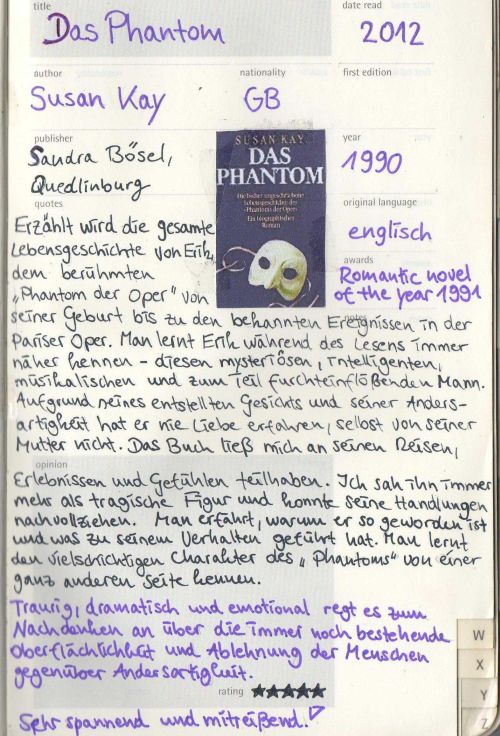 title
Das Phantom
date read
2012
author
Susan Kay
nationality
GB
first edition
publisher
Sandra Bösel,
Quedlinburg
SUSAN KAY
DAS
PHANTOM
Die bisher ungeschriebene
Lebensgeschichte des
»Phantoms der Oper«
Ein biographischer
Roman
year
1990
original language
englisch
awards
Romantic novel
of the year 1991
quotes
Erzählt wird die gesamte
Lebensgeschichte von Erik,
dem berühmten
„Phantom der Oper" von
notes
seiner Geburt bis zu den bekannten Ereignissen in der
Pariser Oper. Man lernt Erik während des Lesens immer
näher kennen - diesen mysteriösen, intelligenten,
musikalischen und zum Teil furchteinflößenden Mann.
Aufgrund seines entstellten Gesichts und seiner Anders-
artigkeit hat er nie Liebe erfahren, selbst von seiner
Mutter nicht. Das Buch ließ mich an seinen Reisen,
opinion
Erlebnissen und Gefühlen teilhaben. Ich sah ihn immer
mehr als tragische Figur und konnte seine Handlungen
nachvollziehen. Man erfährt, warum er so geworden ist
und was zu seinem Verhalten geführt hat. Man lernt
den vielschichtigen Charakter des „Phantoms" von einer
ganz anderen Seite kennen.
Traurig, dramatisch und emotional regt es zum
Nachdenken an über die immer noch bestehende
Oberflächlichkeit und Ablehnung der Menschen
gegenüber Andersartigkeit.
rating ★★★★★
Sehr spannend und mitreißend.
W
X
Y
Z